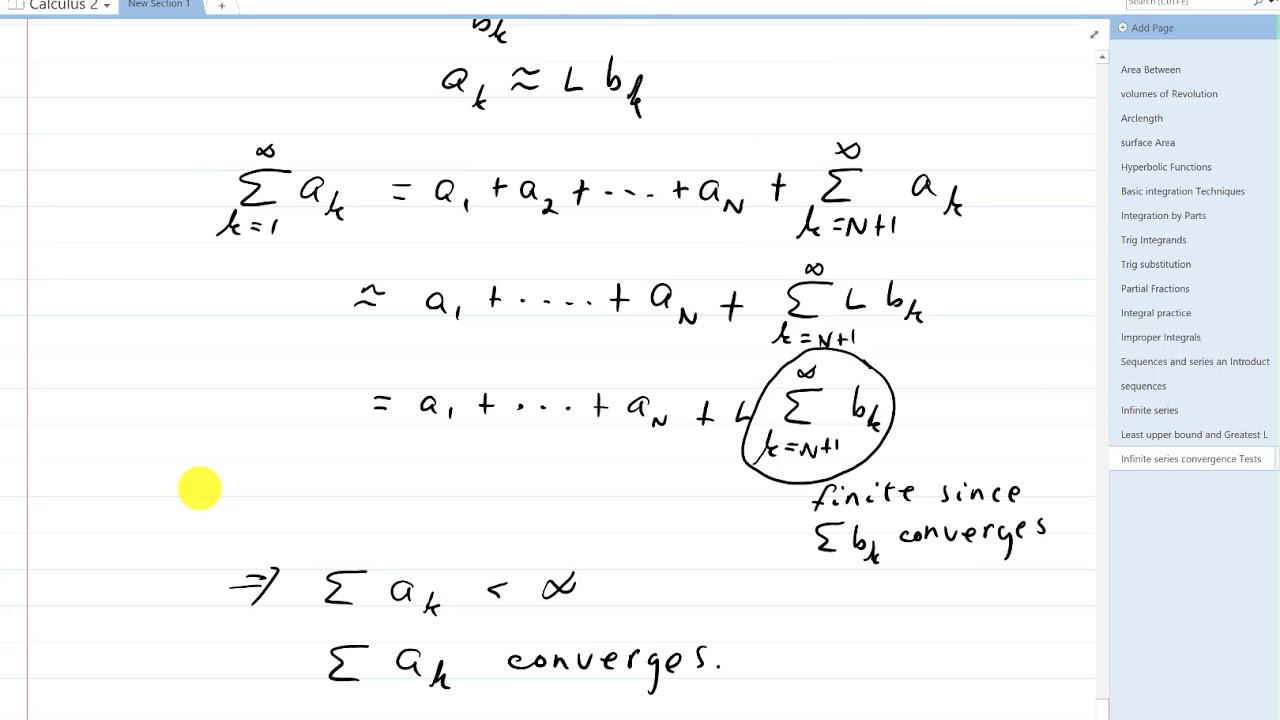 Calculus 2
New Section 1
+
Search (Ctrl+E)
b_k
a_k ≈ L b_k
∞
∑ a_k = a_1 + a_2 + ... + a_N + ∑ a_k
k=1
∞
k=N+1
≈ a_1 + .... + a_N + ∑ L b_k
∞
k=N+1
= a_1 + ... + a_N + L ∑ b_k
∞
k=N+1
finite since
∑ b_k converges
⇒ ∑ a_k < ∞
∑ a_k converges.
Add Page
Area Between
volumes of Revolution
Arclength
surface Area
Hyperbolic Functions
Basic integration Techniques
Integration by Parts
Trig Integrands
Trig substitution
Partial Fractions
Integral practice
Improper Integrals
Sequences and series an Introduct
sequences
Infinite series
Least upper bound and Greatest L
Infinite series convergence Tests